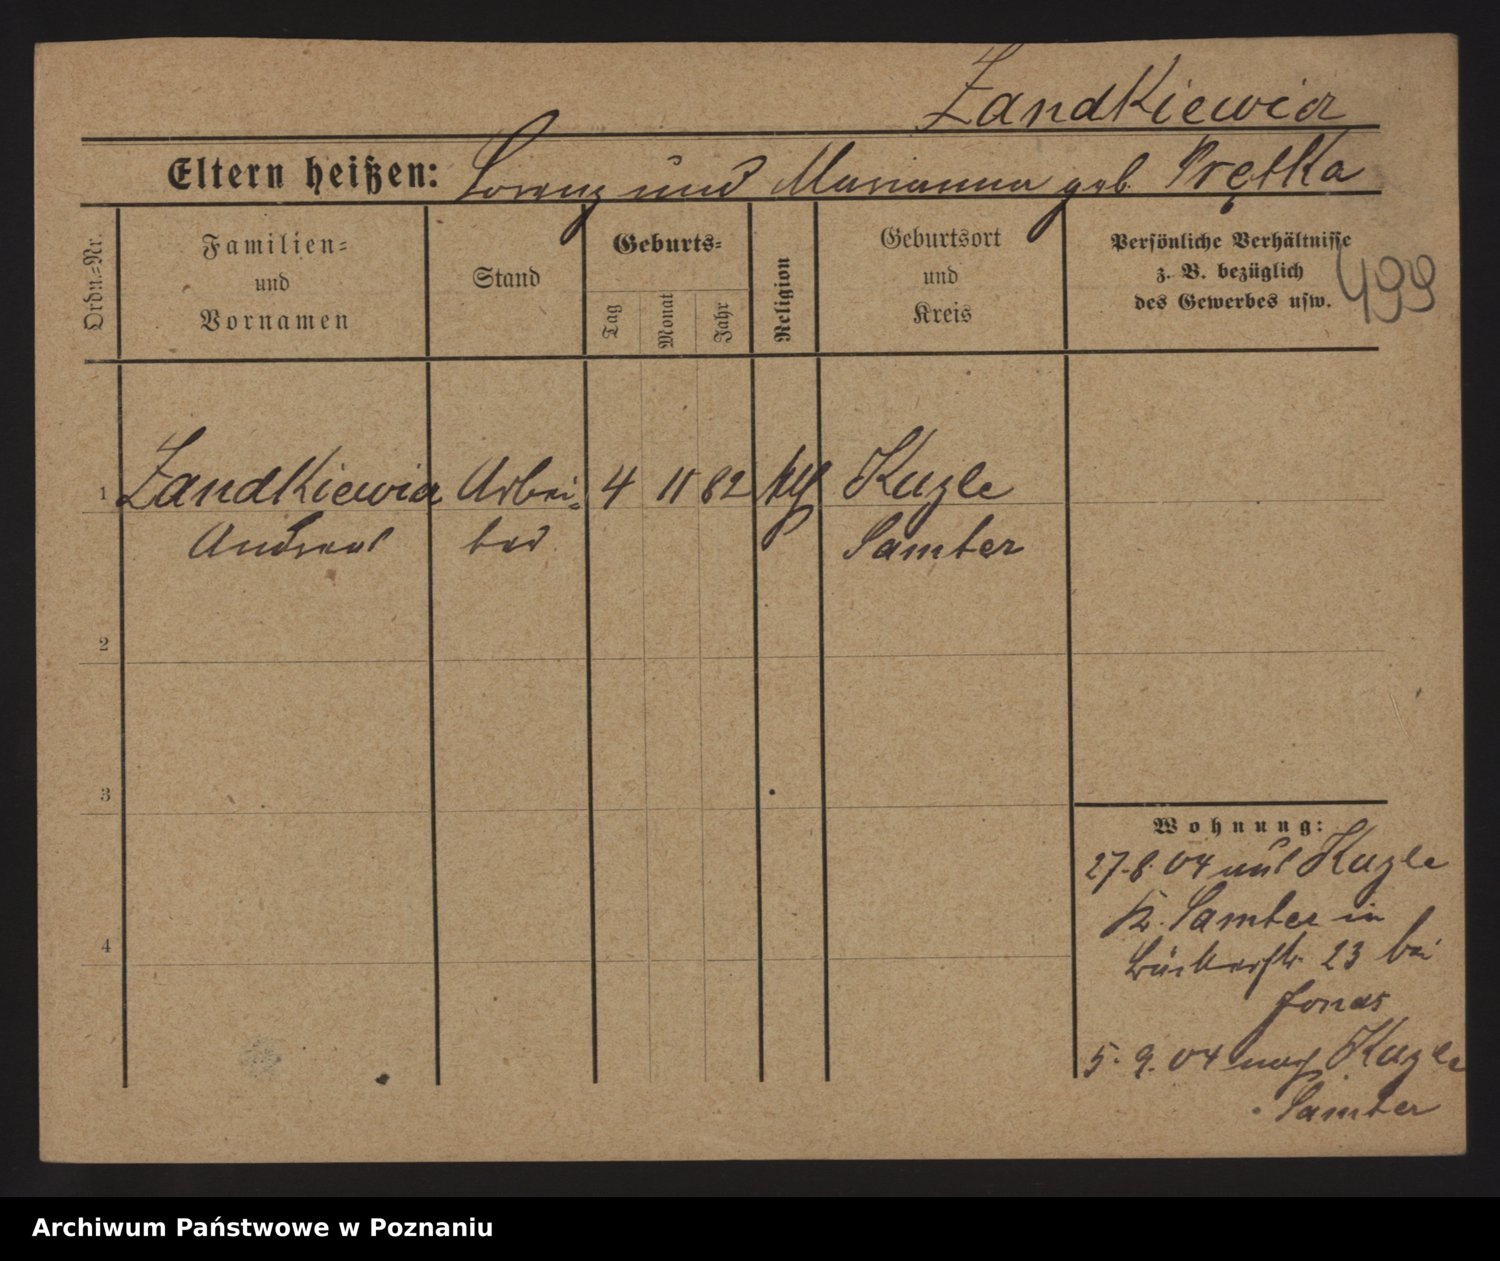 Zandkiewicz
Eltern heißen: Lorenz und Marianna geb. Prętka
Ordn.-Nr.
Familien-
und
Vornamen
Stand
Geburts-
Tag
Monat
Jahr
Religion
Geburtsort
und
Kreis
Persönliche Verhältnisse
z. B. bezüglich
des Gewerbes usw.
499
1 Zandkiewicz Arbei- 4 11 82 kth Kuzle
Andreas ter Samter
2
3
4
Wohnung:
27.8.04 aus Kuzle
Kr. Samter in
Bäckerstr. 23 bei
Jonas
5.9.04 nach Kuzle
Samter
Archiwum Państwowe w Poznaniu